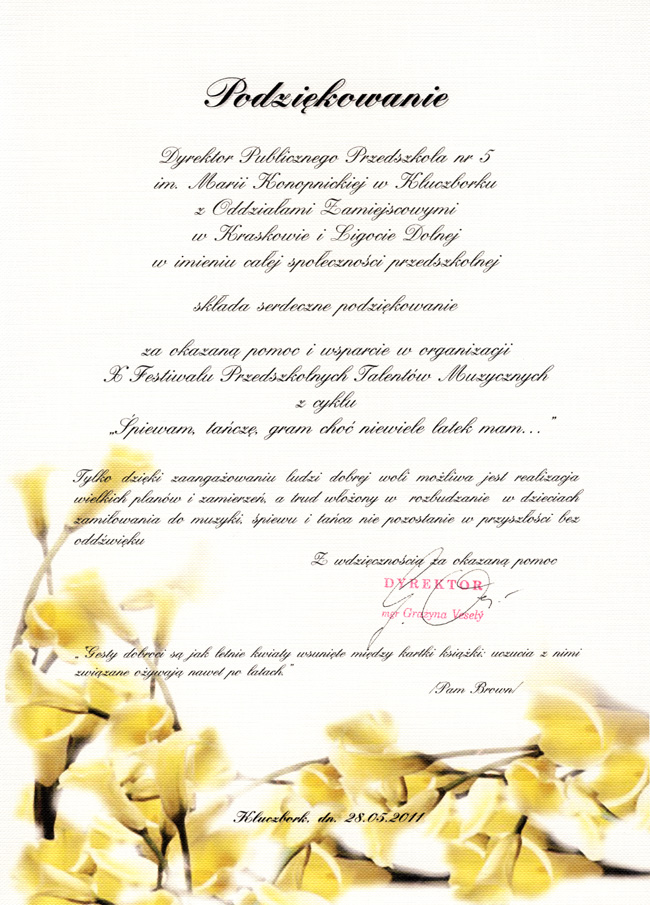 Podziękowanie
Dyrektor Publicznego Przedszkola nr 5
im. Marii Konopnickiej w Kluczborku
z Oddziałami Zamiejscowymi
w Kraskowie i Ligocie Dolnej
w imieniu całej społeczności przedszkolnej
składa serdeczne podziękowanie
za okazaną pomoc i wsparcie w organizacji
X Festiwalu Przedszkolnych Talentów Muzycznych
z cyklu
„Śpiewam, tańczę, gram choć niewiele latek mam…”
Tylko dzięki zaangażowaniu ludzi dobrej woli możliwa jest realizacja
wielkich planów i zamierzeń, a trud włożony w rozbudzanie w dzieciach
zamiłowania do muzyki, śpiewu i tańca nie pozostanie w przyszłości bez
oddźwięku
Z wdzięcznością za okazaną pomoc
DYREKTOR
mgr Grażyna Veselý
„Gesty dobroci są jak letnie kwiaty wsunięte między kartki książki: uczucia z nimi
związane ożywają nawet po latach.”
/Pam Brown/
Kluczbork, dn. 28.05.2011